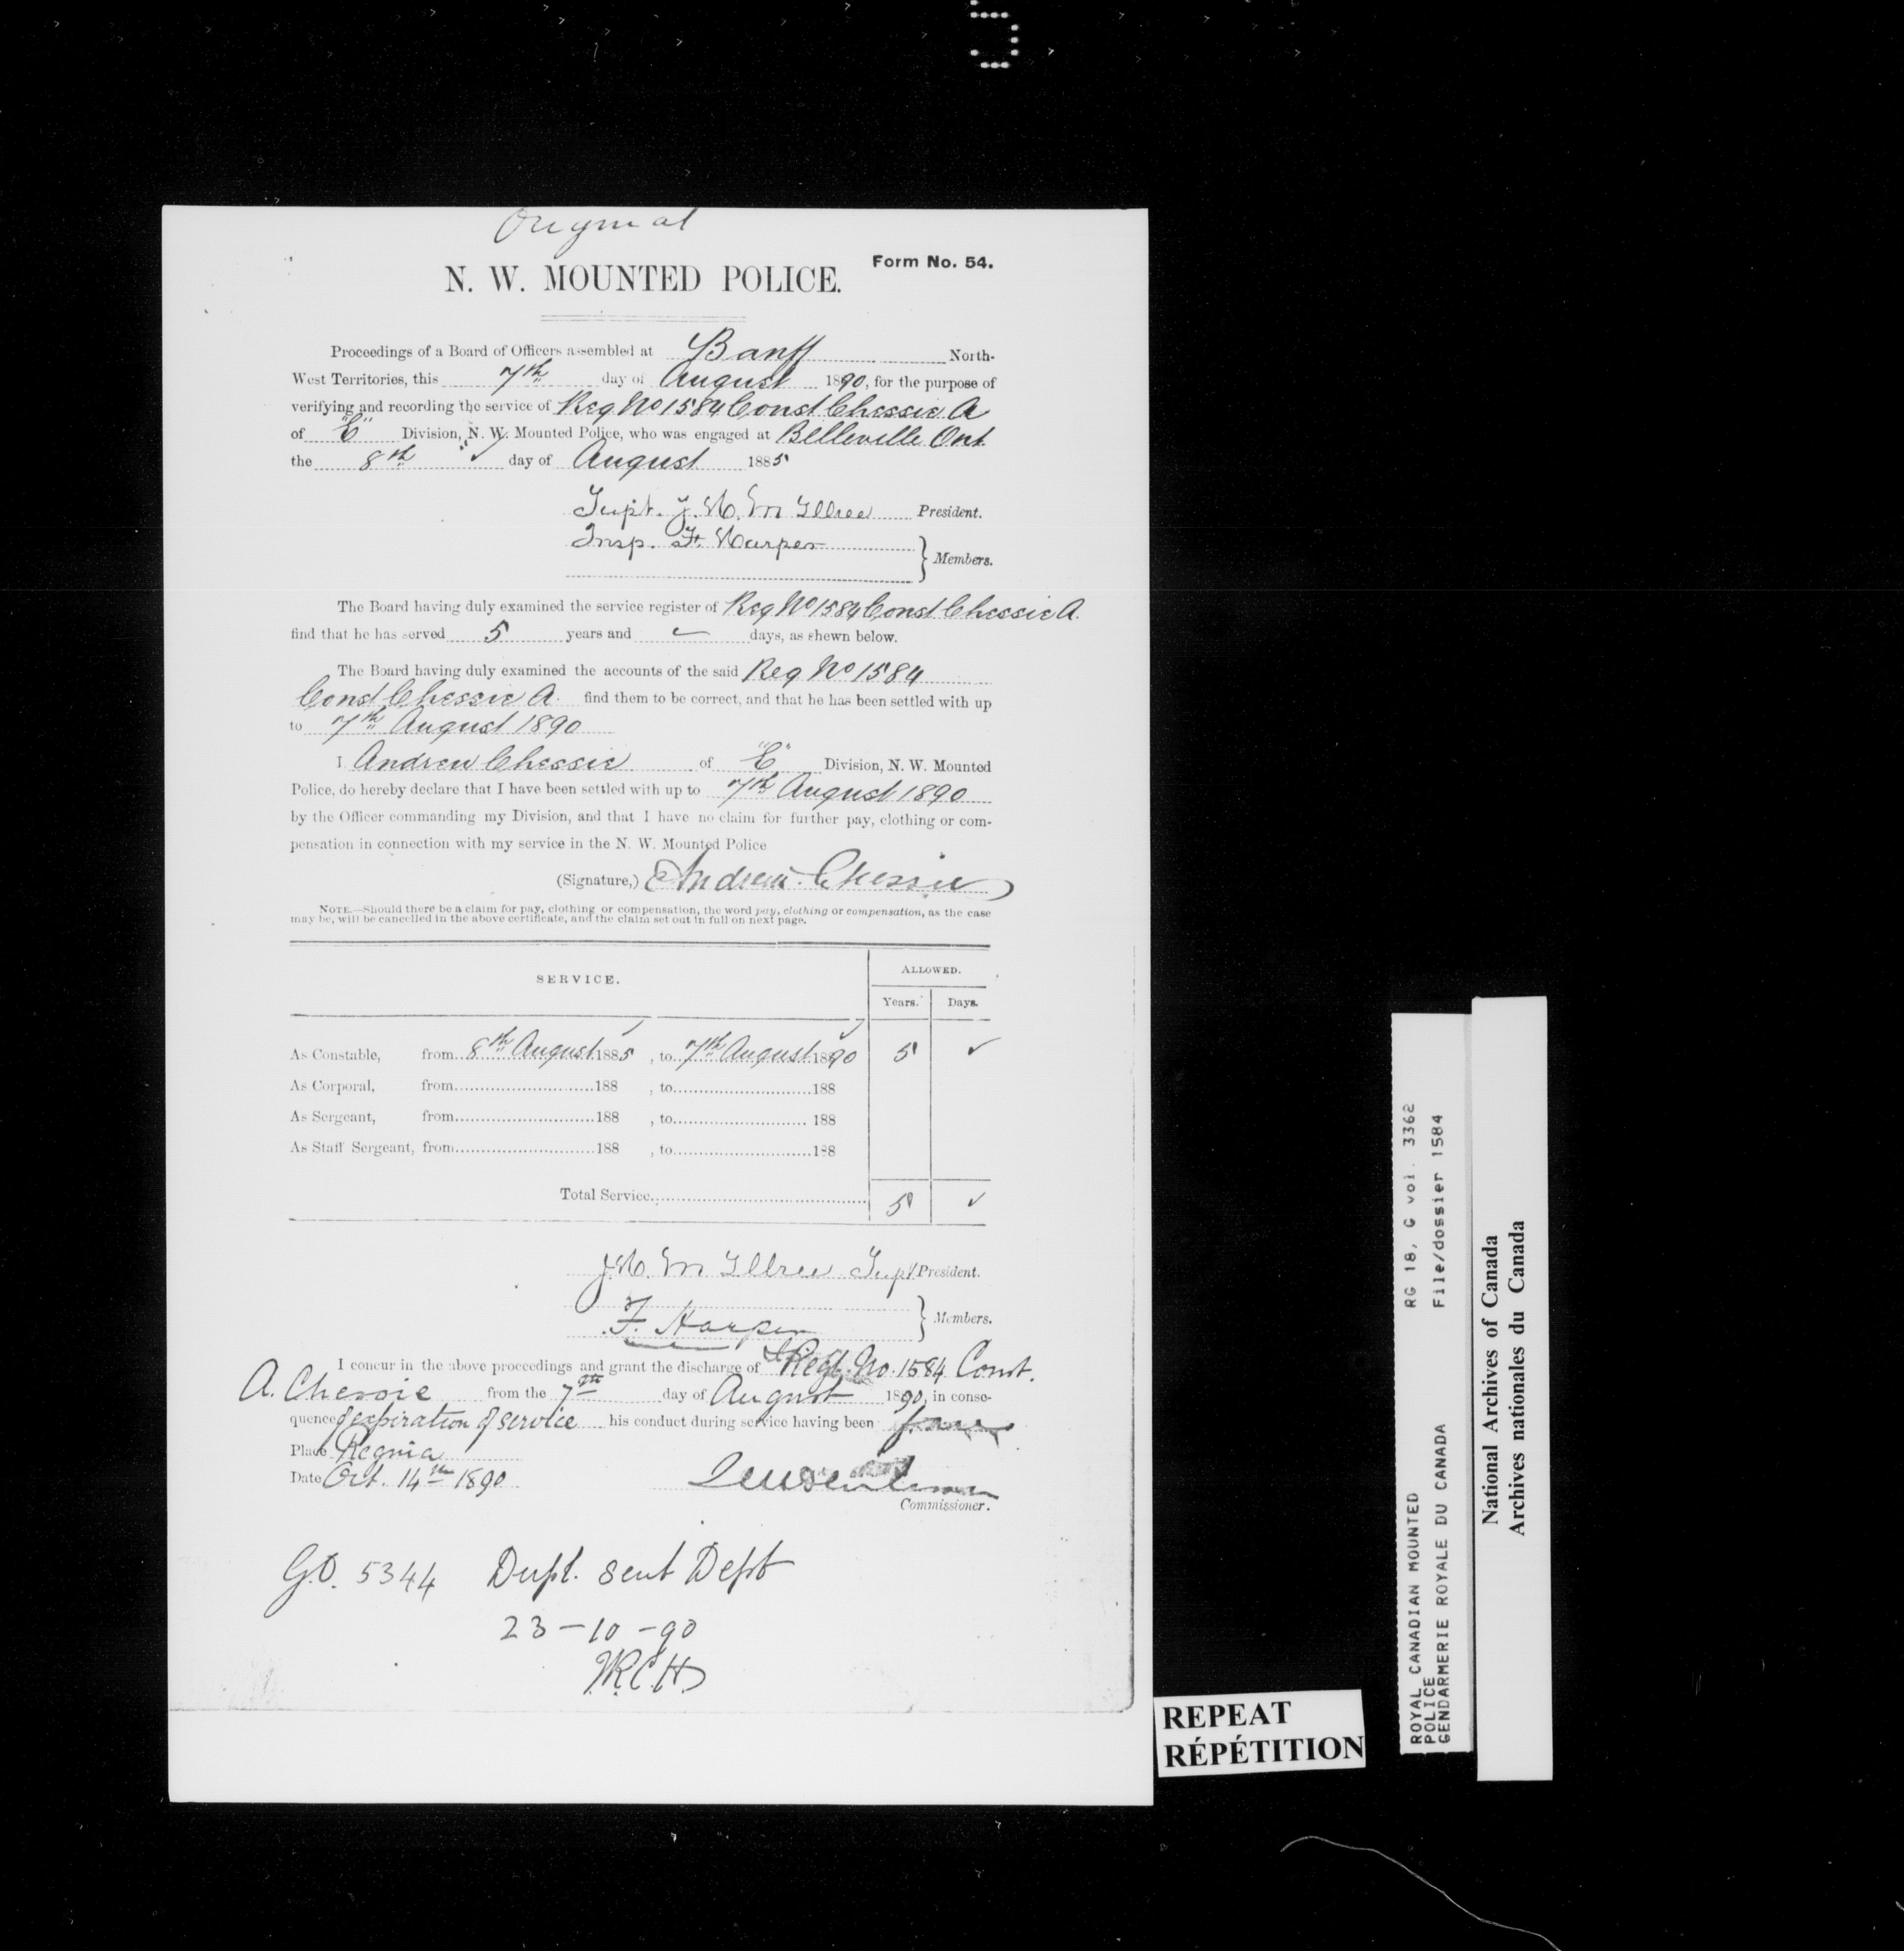 Original
Form No. 54.
N. W. MOUNTED POLICE.
Proceedings of a Board of Officers assembled at Banff North-
West Territories, this 7th day of August 1890, for the purpose of
verifying and recording the service of Reg No 1584 Const Chessie A
of "E" Division, N. W. Mounted Police, who was engaged at Belleville Ont
the 8th day of August 1885
Supt. J. H. McIllree President.
Insp. F. Harper
Members.
The Board having duly examined the service register of Reg No 1584 Const Chessie A.
find that he has served 5 years and days, as shewn below.
The Board having duly examined the accounts of the said Reg No 1584
Const Chessie A. find them to be correct, and that he has been settled with up
to 7th August 1890
I Andrew Chessie of "E" Division, N. W. Mounted
Police, do hereby declare that I have been settled with up to 7th August 1890
by the Officer commanding my Division, and that I have no claim for further pay, clothing or com-
pensation in connection with my service in the N. W. Mounted Police
(Signature,) Andrew Chessie
NOTE.—Should there be a claim for pay, clothing or compensation, the word pay, clothing or compensation, as the case
may be, will be cancelled in the above certificate, and the claim set out in full on next page.
SERVICE.
ALLOWED.
Years. Days.
As Constable, from 8th August 1885, to 7th August 1890 5 ✓
As Corporal, from 188 , to 188
As Sergeant, from 188 , to 188
As Staff Sergeant, from 188 , to 188
Total Service 5 ✓
J. H. McIllree Supt President.
F. Harper
Members.
I concur in the above proceedings and grant the discharge of Regt. No. 1584 Const.
A. Chessie from the 7th day of August 1890, in conse-
quence of expiration of service his conduct during service having been
Place Regina
Date Oct. 14th 1890
Commissioner.
G.O. 5344 Dupl. sent Dept
23-10-90
REPEAT
RÉPÉTITION
ROYAL CANADIAN MOUNTED RG 18, G vol. 3362
POLICE
GENDARMERIE ROYALE DU CANADA File/dossier 1584
National Archives of Canada
Archives nationales du Canada